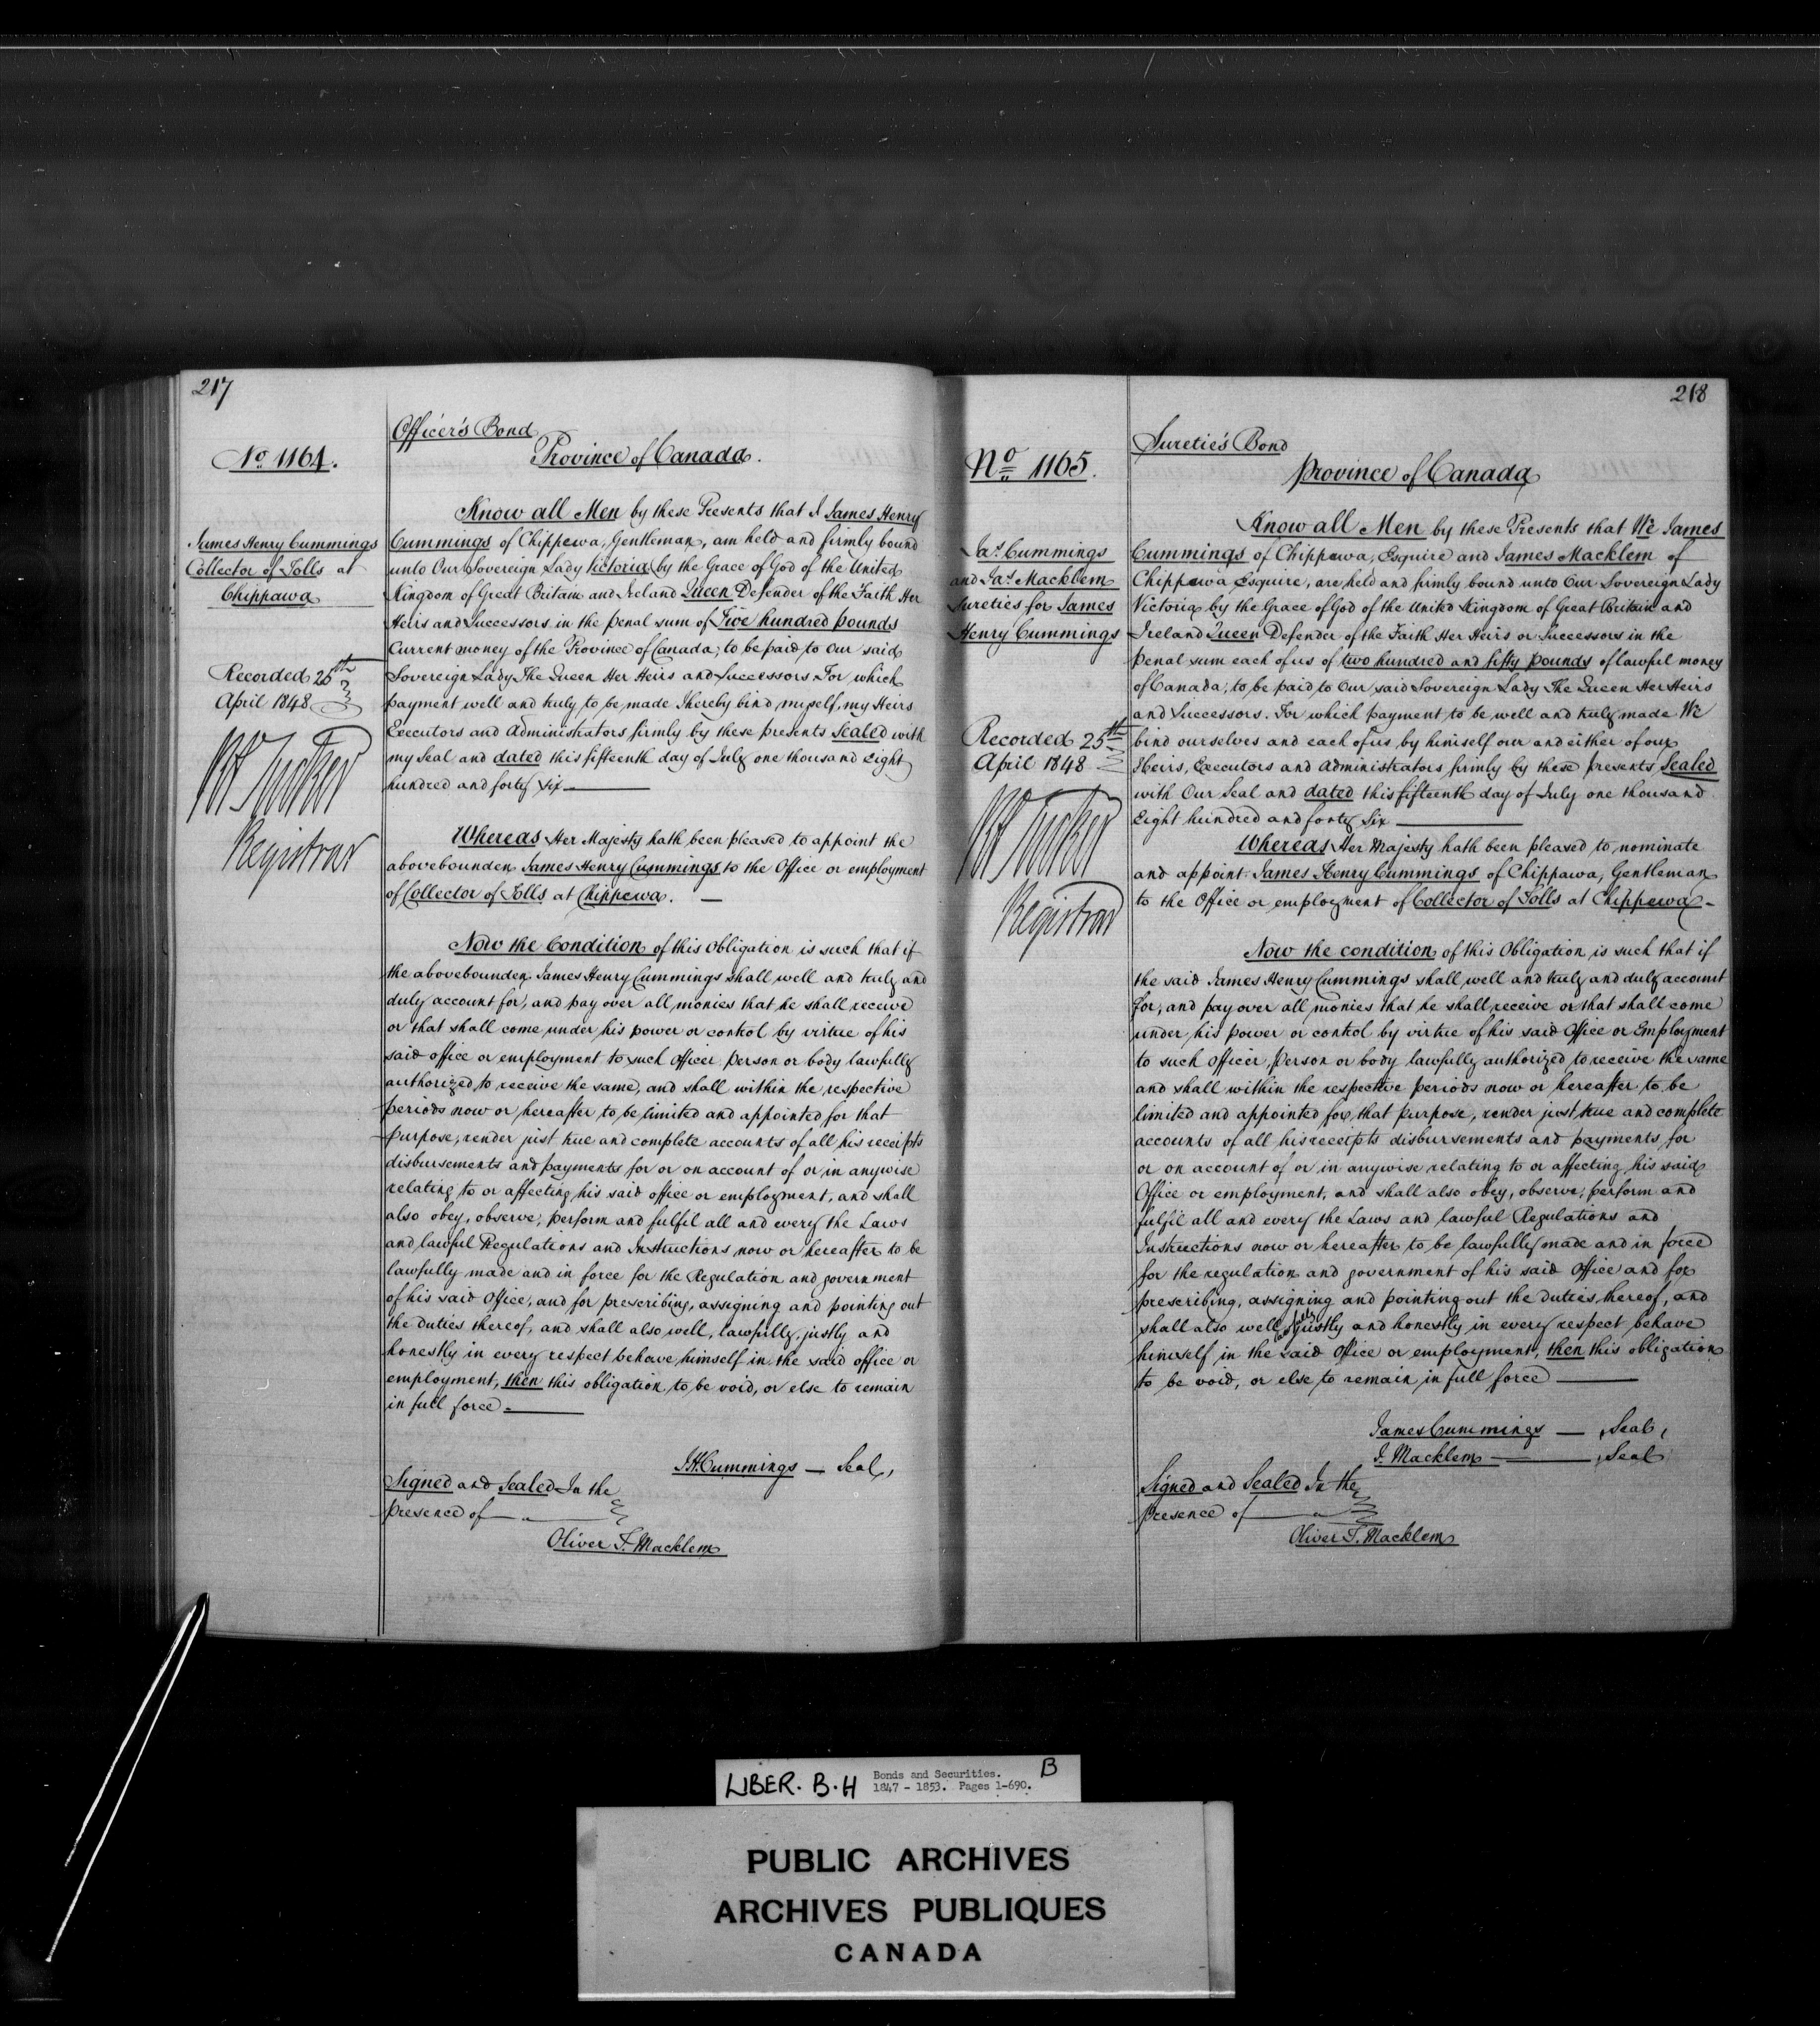 217
Officer's Bond
No 1164.
Province of Canada.
Know all Men by these Presents that I James Henry
James Henry Cummings
Collector of Tolls at
Chippawa
Cummings of Chippewa, Gentleman, am held and firmly bound
unto Our Sovereign Lady Victoria by the Grace of God of the United
Kingdom of Great Britain and Ireland Queen Defender of the Faith Her
Heirs and Successors in the penal sum of Five hundred pounds
Current money of the Province of Canada; to be paid to Our said
Sovereign Lady The Queen Her Heirs and Successors For which
Recorded 25th
April 1848
payment well and truly to be made I hereby bind myself, my Heirs
Executors and Administrators firmly by these presents Sealed with
my Seal and dated this fifteenth day of July one thousand Eight
hundred and forty Six
Tucker
Registrar
Whereas Her Majesty hath been pleased to appoint the
abovebounden James Henry Cummings to the Office or employment
of Collector of Tolls at Chippewa. —
Now the Condition of this Obligation is such that if
the abovebounden James Henry Cummings shall well and truly and
duly account for, and pay over all monies that he shall receive
or that shall come under his power or control by virtue of his
said office or employment to such Officer person or body lawfully
authorized, to receive the same, and shall within the respective
periods now or hereafter to be limited and appointed for that
purpose, render just true and complete accounts of all his receipts
disbursements and payments for or on account of or in anywise
relating to or affecting his said office or employment, and shall
also obey, observe, perform and fulfil all and every the Laws
and lawful Regulations and Instructions now or hereafter to be
lawfully made and in force for the Regulation and government
of his said Office, and for prescribing, assigning and pointing out
the duties thereof, and shall also well, lawfully, justly and
honestly in every respect behave himself in the said office or
employment, then this obligation to be void, or else to remain
in full force.
J.H. Cummings — Seal,
Signed and Sealed In the
presence of
Oliver T. Macklem
218
Suretie's Bond
No 1165.
Province of Canada
Know all Men by these Presents that We James
Jas Cummings
and Jas Macklem
Sureties for James
Henry Cummings
Cummings of Chippawa, Esquire and James Macklem of
Chippawa Esquire, are held and firmly bound unto Our Sovereign Lady
Victoria by the Grace of God of the United Kingdom of Great Britain and
Ireland Queen Defender of the Faith Her Heirs or Successors in the
penal sum each of us of two hundred and fifty pounds of lawful money
of Canada; to be paid to Our said Sovereign Lady The Queen Her Heirs
and Successors. For which payment to be well and truly made We
Recorded 25th
April 1848
bind ourselves and each of us by himself our and either of our
Heirs, Executors and Administrators firmly by these presents, Sealed
with Our Seal and dated this fifteenth day of July one thousand
Eight hundred and forty Six
Tucker
Registrar
Whereas Her Majesty hath been pleased to nominate
and appoint James Henry Cummings of Chippawa, Gentleman
to the Office or employment of Collector of Tolls at Chippewa -
Now the condition of this Obligation is such that if
the said James Henry Cummings shall well and truly and duly account
for, and pay over all monies that he shall receive or that shall come
under his power or control by virtue of his said Office or Employment
to such Officer, person or body lawfully authorized to receive the same
and shall within the respective periods now or hereafter to be
limited and appointed for that purpose, render just true and complete
accounts of all his receipts disbursements and payments for
or on account of or in anywise relating to or affecting his said
Office or employment, and shall also obey, observe, perform and
fulfil all and every the Laws and lawful Regulations and
Instructions now or hereafter to be lawfully made and in force
for the regulation and government of his said Office and for
prescribing, assigning and pointing out the duties thereof, and
shall also well, lawfully justly and honestly in every respect behave
himself in the said Office or employment, then this obligation
to be void, or else to remain in full force
James Cummings — Seal,
J. Macklem — Seal
Signed and Sealed In the
presence of
Oliver T. Macklem
LIBER. B.H Bonds and Securities. B
1847 - 1853. Pages 1-690.
PUBLIC ARCHIVES
ARCHIVES PUBLIQUES
CANADA